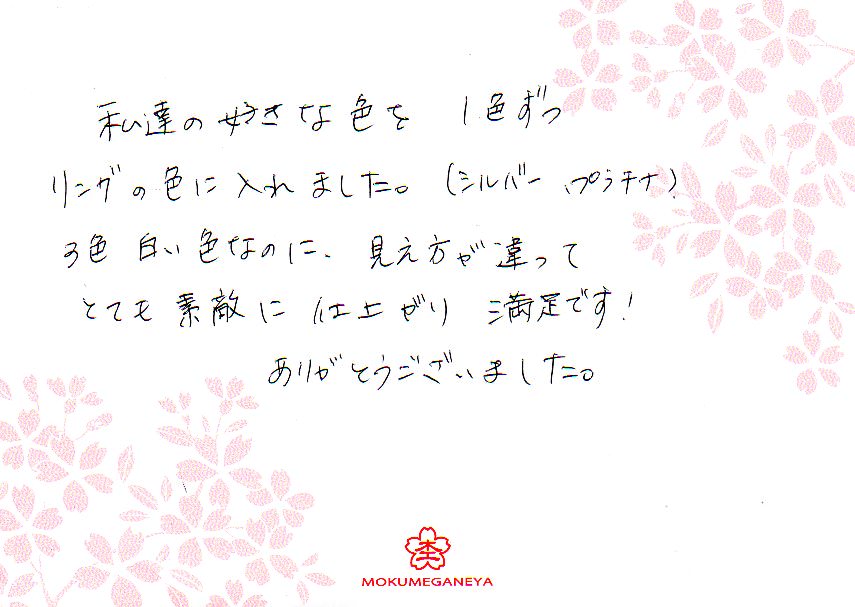 私達の好きな色を 1色ずつ
リングの色に入れました。(シルバー、プラチナ)
3色 白い色なのに、見え方が違って
とても素敵に仕上がり 満足です!
ありがとうございました。
杢
MOKUMEGANEYA